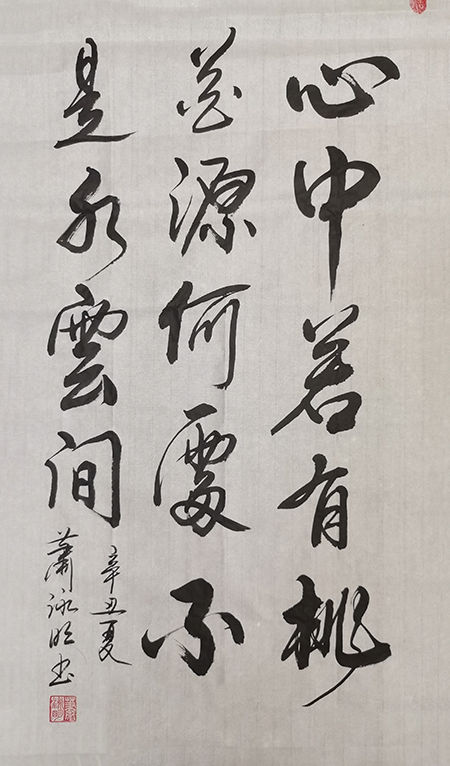 心中若有桃
花源何處不
是水雲间
辛丑夏
蕭詠明书